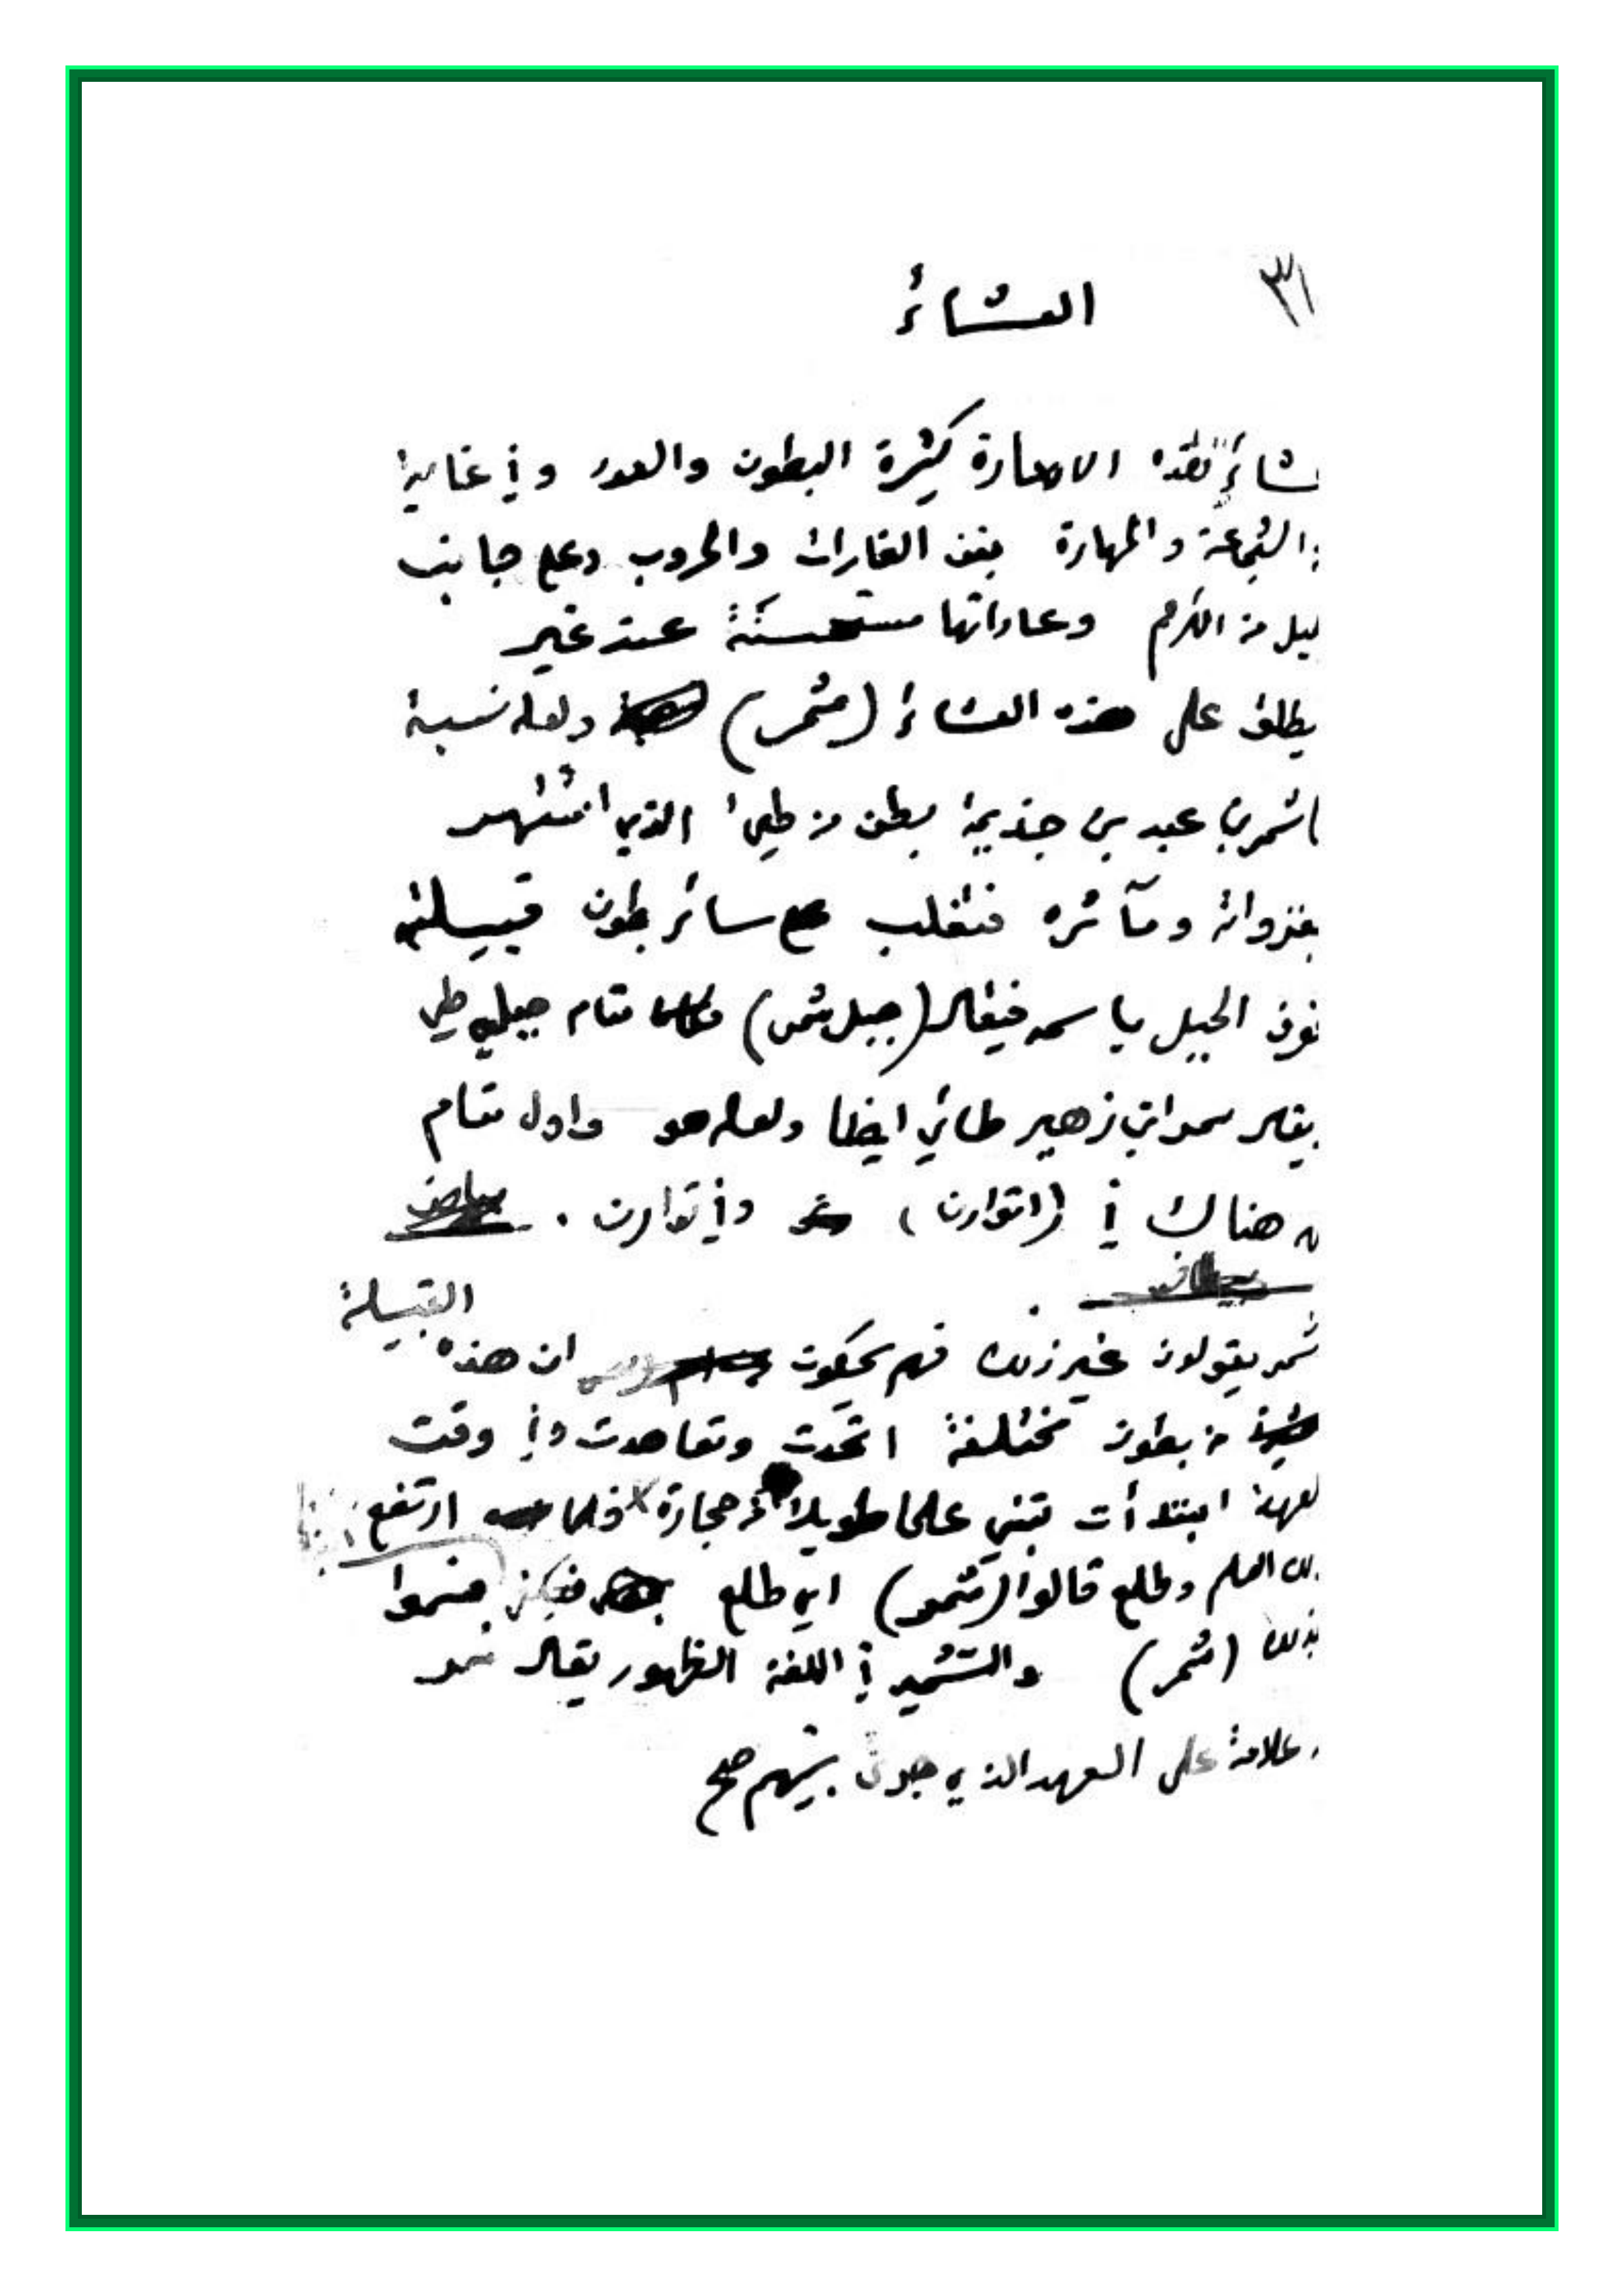 ٣١
العشائر
شائر هذه الامارة كثيرة البطون والعدد وفي غاية
الشجاعة والمهارة بفن الغارات والحروب وعلى جانب
من الكرم وعاداتها مستحسنة عند غير
يطلق على هذه العشائر (شمر) ولعله نسبة
شمر بن عبد بن جذيمة بطن من طيء الذي اشتهر
بغزواته ومآثره فتغلب على سائر بطون قبيلته
الجبل باسمه فيقال (جبل شمر) مقام جبلي طي
زهير طائي ايضا ولعله هو واول مقام
هناك في
القبيلة
شمر يقولون غير ذلك فهم يحكون ان هذه
من بطون مختلفة اتحدت وتعاهدت وفي وقت
ابتدأت تبني علما طويلا من حجارة فلما ارتفع
العلم وطلع قالوا (شمر) اي طلع فسموا
بذلك (شمر) والتشمير في اللغة الظهور يقال شمر
علامة على العهد الذي جرى بينهم صح